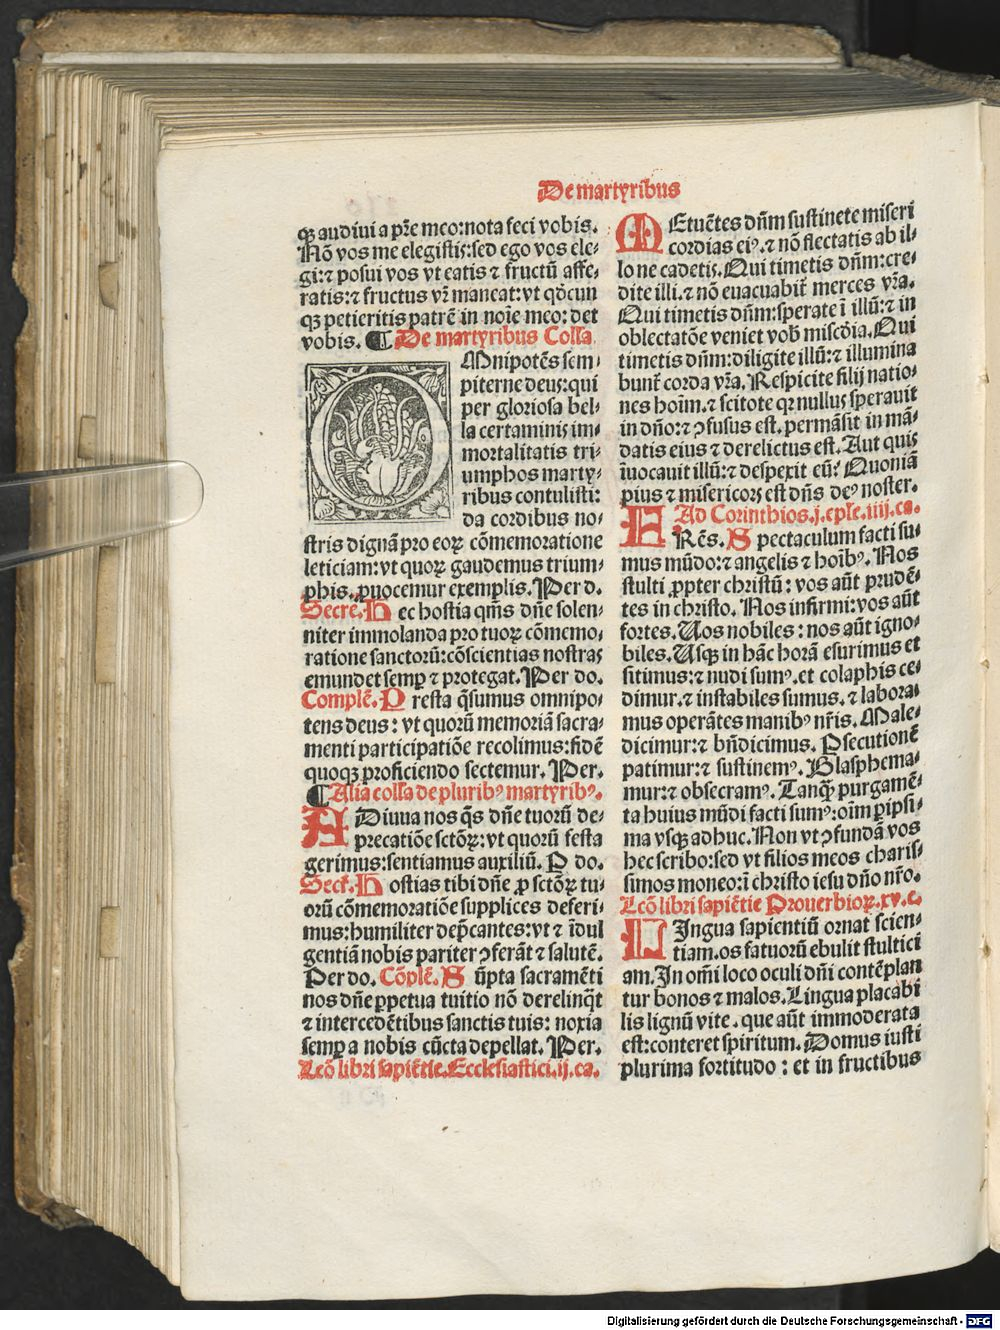 De martyribus
qꝫ audiui a pr̃e meo:nota feci vobis.
Nõ vos me elegistis:sed ego vos ele⸗
gi:⁊ posui vos vt eatis ⁊ fructũ affe⸗
ratis:⁊ fructus vr̃ maneat:vt qd̕cun
qꝫ petieritis patrẽ in noĩe meo: det
vobis. ¶ De martyribus Coll̃a
OMnipotẽs sem⸗
piterne deus:qui
per gloriosa bel⸗
la certaminis im⸗
mortalitatis tri⸗
umphos marty⸗
ribus contulisti:
da cordibus no⸗
stris dignã pro eoꝝ cõmemoratione
leticiam:vt quoꝝ gaudemus trium⸗
phis.ꝓuocemur exemplis. Per d.
Secre. Hec hostia qm̃s dñe solen⸗
niter immolanda pro tuoꝝ cõmemo⸗
ratione sanctorũ:cõscientias nostras
emundet semꝑ ⁊ protegat. Per do.
Complẽ. Presta q̃sumus omnipo⸗
tens deus: vt quorũ memoriã sacra⸗
menti participatiõe recolimus:fidẽ
quoqꝫ proficiendo sectemur. Per.
¶ Alia coll̃a de pluribꝰ martyribꝰ.
ADiuua nos q̃s dñe tuorũ de⸗
precatiõe sctõꝝ:vt quorũ festa
gerimus:sentiamus auxiliũ. P do.
Secr̃. Hostias tibi dñe ꝓ sctõꝝ tu⸗
orũ cõmemoratiõe supplices deferi⸗
mus:humiliter dep̃cantes:vt ⁊ ĩdul
gentiã nobis pariter ꝯferãt ⁊ salutẽ.
Per do. Cõplẽ. Sũpta sacramẽti
nos dñe ꝑpetua tuitio nõ derelinq̃t
⁊ intercedẽtibus sanctis tuis: noxia
semꝑ a nobis cũcta depellat. Per.
Lcõ libri sapiẽtie. Ecclesiastici.ij.ca.
MEtuẽtes dñm sustinete miseri
cordias eiꝰ.⁊ nõ flectatis ab il⸗
lo ne cadetis. Qui timetis dñm:cre⸗
dite illi.⁊ nõ euacuabit̃ merces vr̃a.
Qui timetis dñm:sperate ĩ illũ:⁊ in
oblectatõe veniet vob̃ misc̃dia. Qui
timetis dñm:diligite illũ:⁊ illumina
bunt̃ corda vr̃a. Respicite filij natio⸗
nes hoĩm.⁊ scitote qꝛ nullus sperauit
in dño:⁊ ꝯfusus est. permãsit in mã⸗
datis eius ⁊ derelictus est. Aut quis
ĩuocauit illũ:⁊ despexit eũ? Quoniã
pius ⁊ misericors est dñs deꝰ noster.
Ad Corinthios.j.eple.iiij.ca.
FRẽs. Spectaculum facti su⸗
mus mũdo:⁊ angelis ⁊ hoĩbꝰ. Nos
stulti ꝓpter christũ: vos aũt prudẽ⸗
tes in christo. Nos infirmi:vos aũt
fortes. Uos nobiles: nos aũt igno⸗
biles. Usqꝫ in hãc horã esurimus et
sitimus:⁊ nudi sumꝰ.et colaphis ce⸗
dimur.⁊ instabiles sumus.⁊ labora⸗
mus operãtes manibꝰ nr̃is. Male⸗
dicimur:⁊ bñdicimus. Ꝑsecutionẽ
patimur:⁊ sustinemꝰ. Blasphema⸗
mur:⁊ obsecramꝰ. Tanqꝫ purgamẽ⸗
ta huius mũdi facti sumꝰ:oĩm ꝑipsi⸗
ma vsqꝫ adhuc. Non vt ꝯfundã vos
hec scribo:sed vt filios meos charis⸗
simos moneo:ĩ christo iesu dño nr̃o.
Lcõ libri sapiẽtie Prouerbioꝝ.xv.c.
LIngua sapientiũ ornat scien⸗
tiam.os fatuorũ ebulit stultici
am. In om̃i loco oculi dñi contẽplan
tur bonos ⁊ malos. Lingua placabi
lis lignũ vite. que aũt immoderata
est:conteret spiritum. Domus iusti
plurima fortitudo: et in fructibus
Digitalisierung gefördert durch die Deutsche Forschungsgemeinschaft - DFG